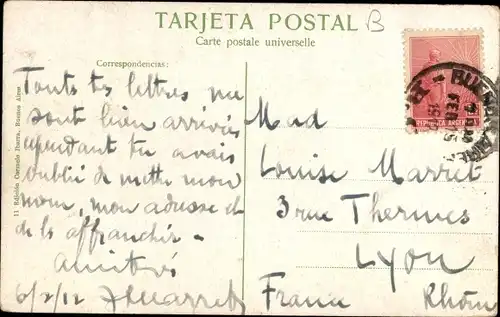 TARJETA POSTAL
B
Carte postale universelle
Correspondencias:
Touts tes lettres me
sont bien arrivés
cependant tu avais
oublié de mettre mon
nom, mon adresse et
de la affranchir -
amitiés
6/2/12
Mad
Louise Marret
3 rue Thermes
Lyon
France Rhône
REPUBLICA ARGENTINA
11 Edición Osmale Ibarra, Buenos Aires